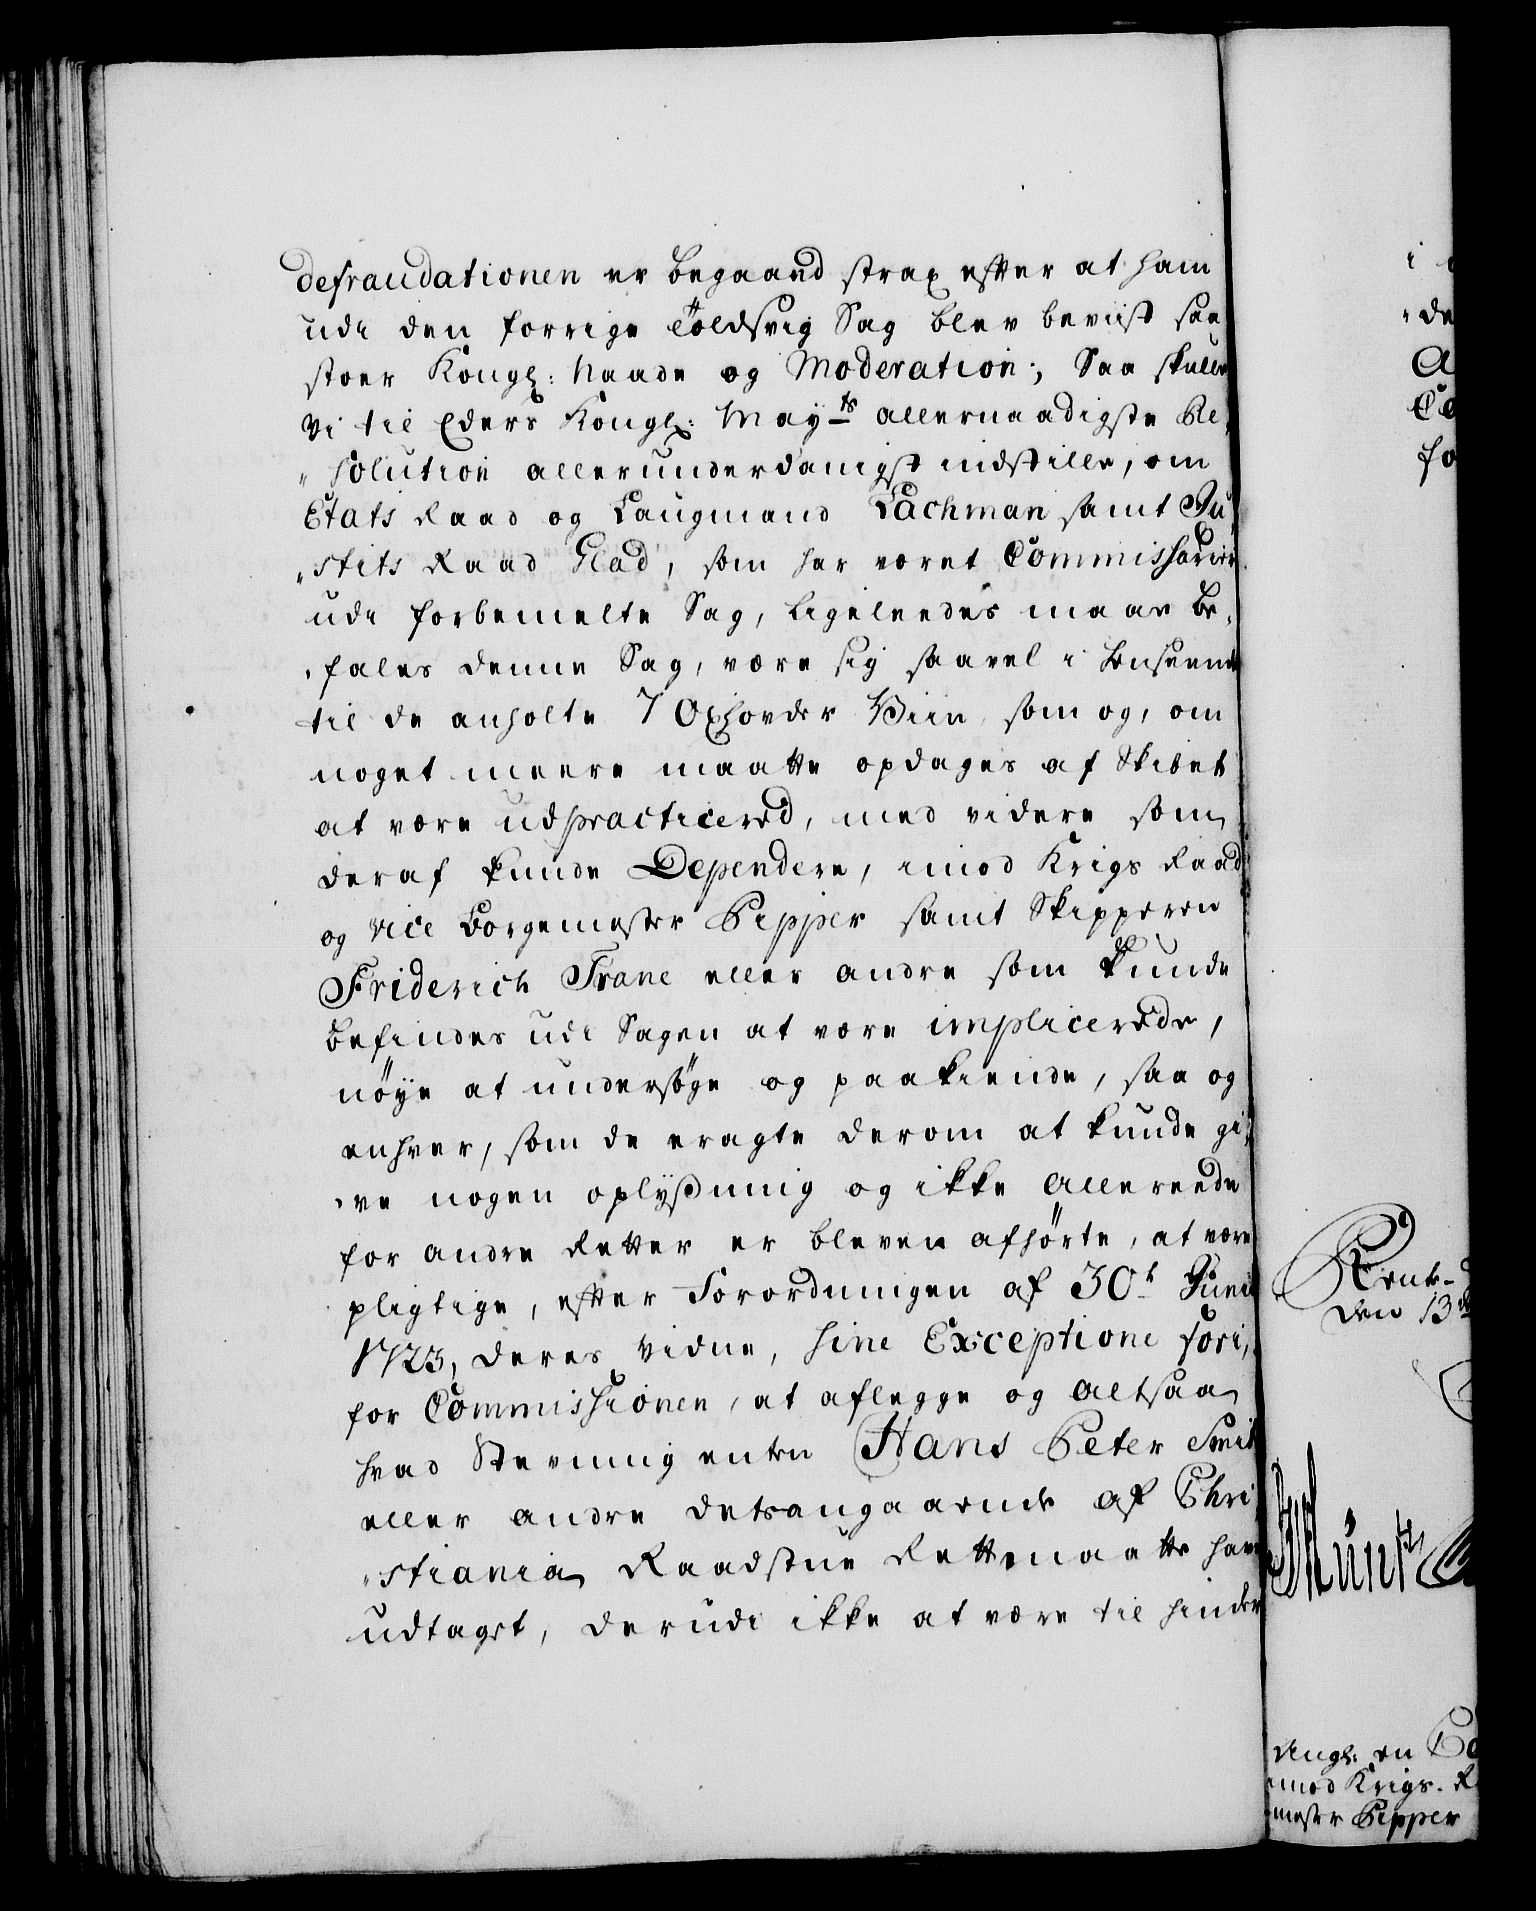 defraudationen er begaaed strax efter at ham
udi den forrige Toldsvig Sag blev beviist saa
stoer Kongl: Naade og Moderation; Saa skulle
Vi til Eders Kongl: May^ts allernaadigste Re,
„solution allerunderdanigst indstille, om
Etats Raad og Laugmand Lachman samt Ju,
„stits Raad Glad, som har været Commissarier
udi forbemelte Sag, ligeleedes maae be,
„fales denne Sag, være sig saavel i henseende
til de anholte 7 Oxhovder Viin, som og, om
noget meere maatte opdages af Skibet
at være udpracticered, med videre som
deraf kunde Dependere, imod Krigs Raad
og vice Borgemester Pipper samt Skipperen
Friderich Trane eller andre som kunde
befindes udi Sagen at være implicerede,
nöye at undersöge og paakiende, saa og
enhver, som de eragte derom at kunde gi,
„ve nogen oplyßning og ikke allereede
for andre Retter er bleven afhörte, at være
pligtige, efter Forordningen af 30^t Junii
1723, deres Vidne, sine Exceptione fori,
for Commissionen, at aflegge og altsaa
hvad Stevning enten Hans Peter Smit
eller andre detsangaaende af Chri,
„stiania Raadstue Rett maatte have
udtaget, derudi ikke at være til hinder
i
„de
A
Co
fo
Rente-
den 13
Angl: en Co
imod Krigs-R
mester Pipper